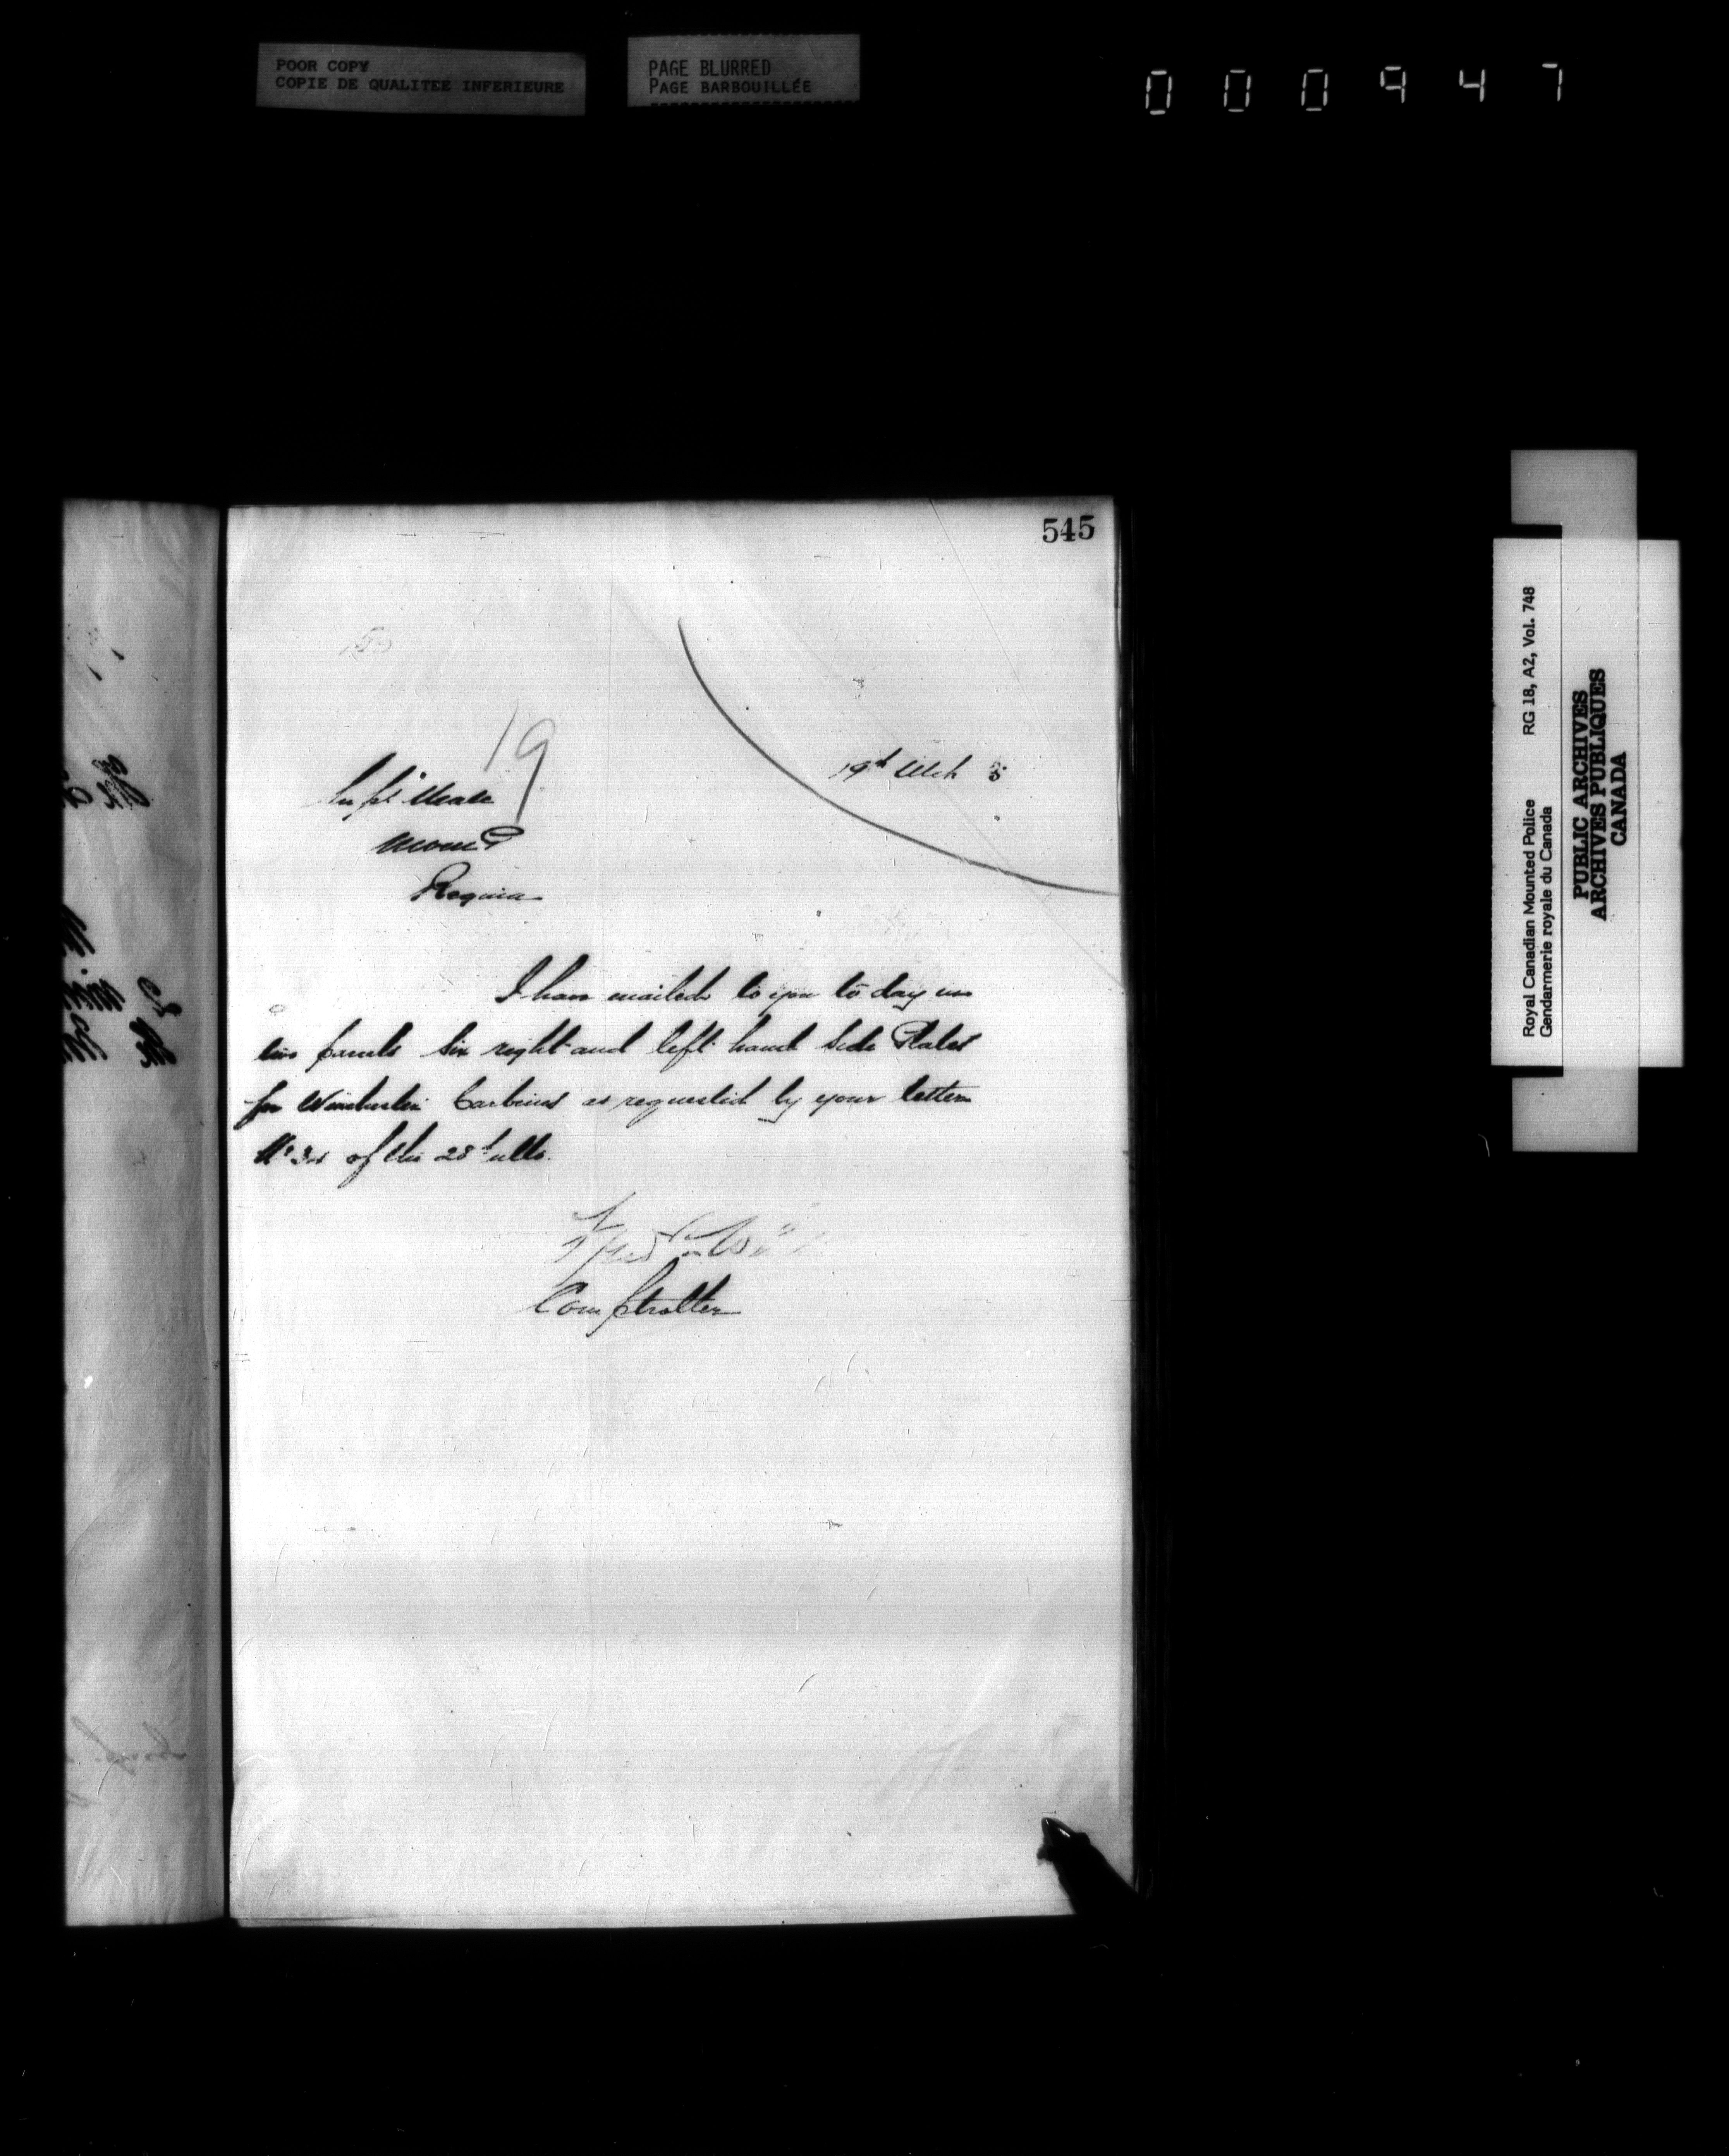 POOR COPY
COPIE DE QUALITEE INFERIEURE
PAGE BLURRED
PAGE BARBOUILLÉE
000947
545
19
19th Mch 5
Supt Neale
NWMP
Regina
I have mailed to you to day in
two parcels six right and left hand side Plates
for Winchester Carbines as requested by your letter
No 34 of the 28th ulto.
Fred White
Comptroller
Royal Canadian Mounted Police RG 18, A2, Vol. 748
Gendarmerie royale du Canada
PUBLIC ARCHIVES
ARCHIVES PUBLIQUES
CANADA